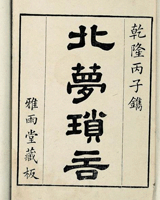 乾隆丙子鐫
北夢瑣言
雅雨堂藏板